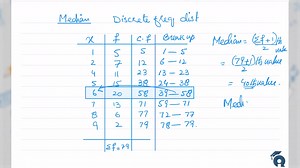 Median Discrete freq dist
x f c.f Breakup
1 5 5 1 — 5
2 7 12 6 — 12
4 11 23 13 — 23
5 15 38 24 — 38
6 20 58 39 — 58
7 13 71 59 — 71
8 6 77 72 — 77
9 2 79 78 — 79
Σf=79
Median = (Σf+1)/2 th
= (79+1)/2 th value
= 40th value
Med